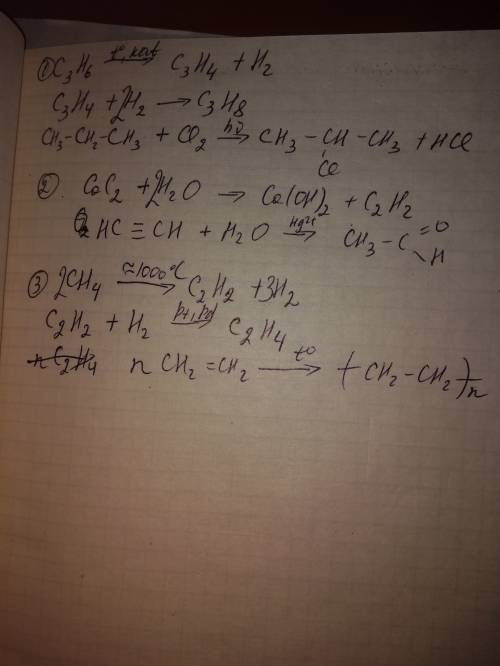 ① C₃H₆ —t°, kat→ C₃H₄ + H₂
C₃H₄ + 2H₂ → C₃H₈
CH₃–CH₂–CH₃ + Cl₂ —hν→ CH₃–CH–CH₃ + HCl
Cl
② CaC₂ + 2H₂O → Ca(OH)₂ + C₂H₂
HC≡CH + H₂O —Hg²⁺→ CH₃–C=O
H
③ 2CH₄ —≈1000°C→ C₂H₂ + 3H₂
C₂H₂ + H₂ —Pt, Pd→ C₂H₄
n C₂H₄ n CH₂=CH₂ —t°→ (–CH₂–CH₂–)n